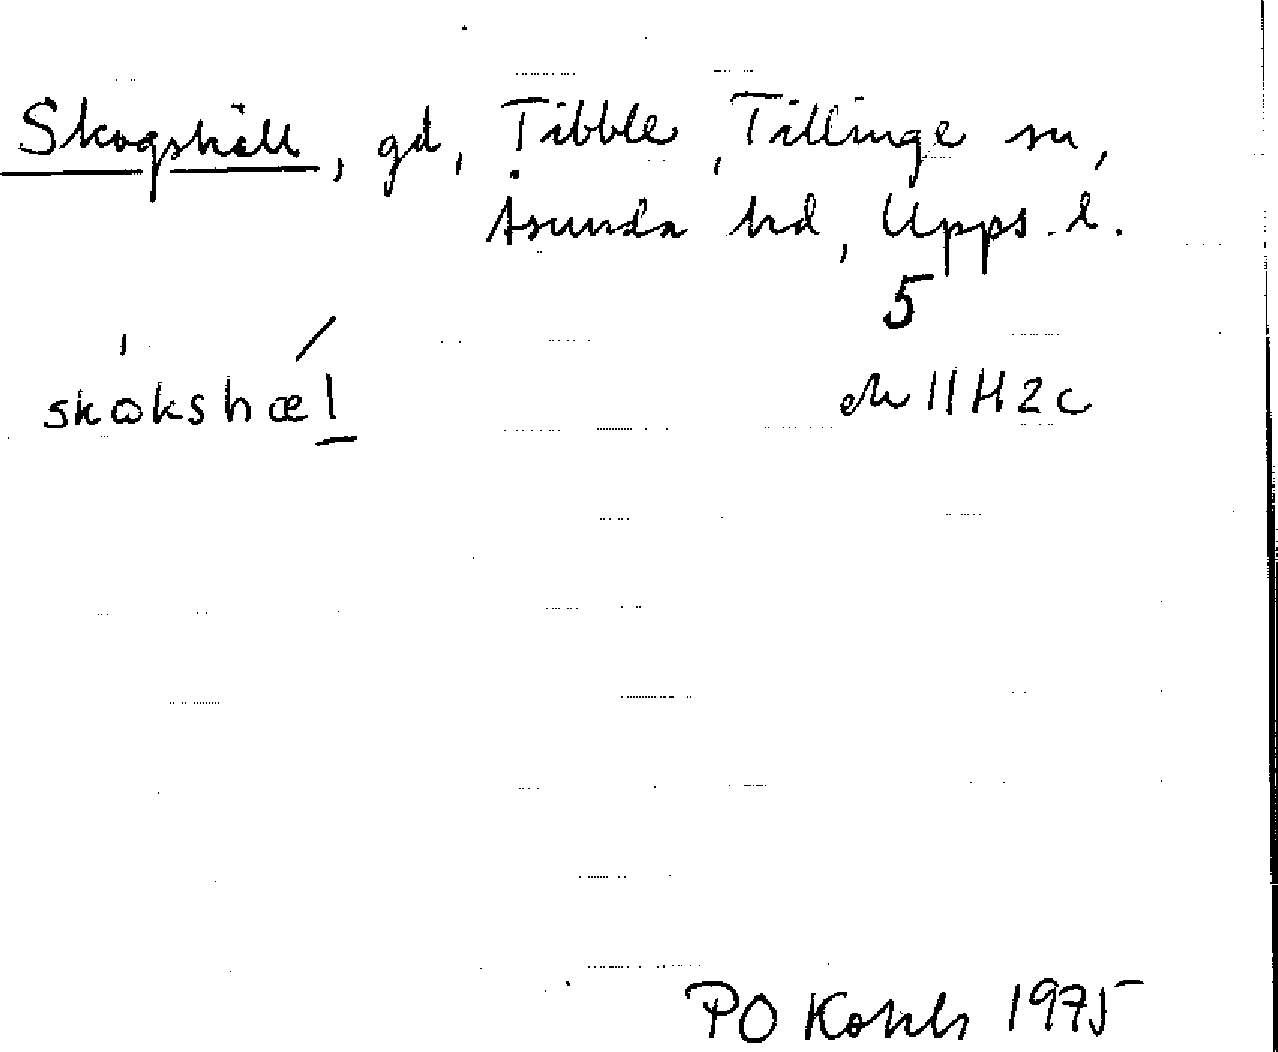 Skogshäll, gd, Tibble, Tillinge sn,
Åsunda hd, Upps. l.
5
ek 11H2c
skokshæl
PO Kohls 1975